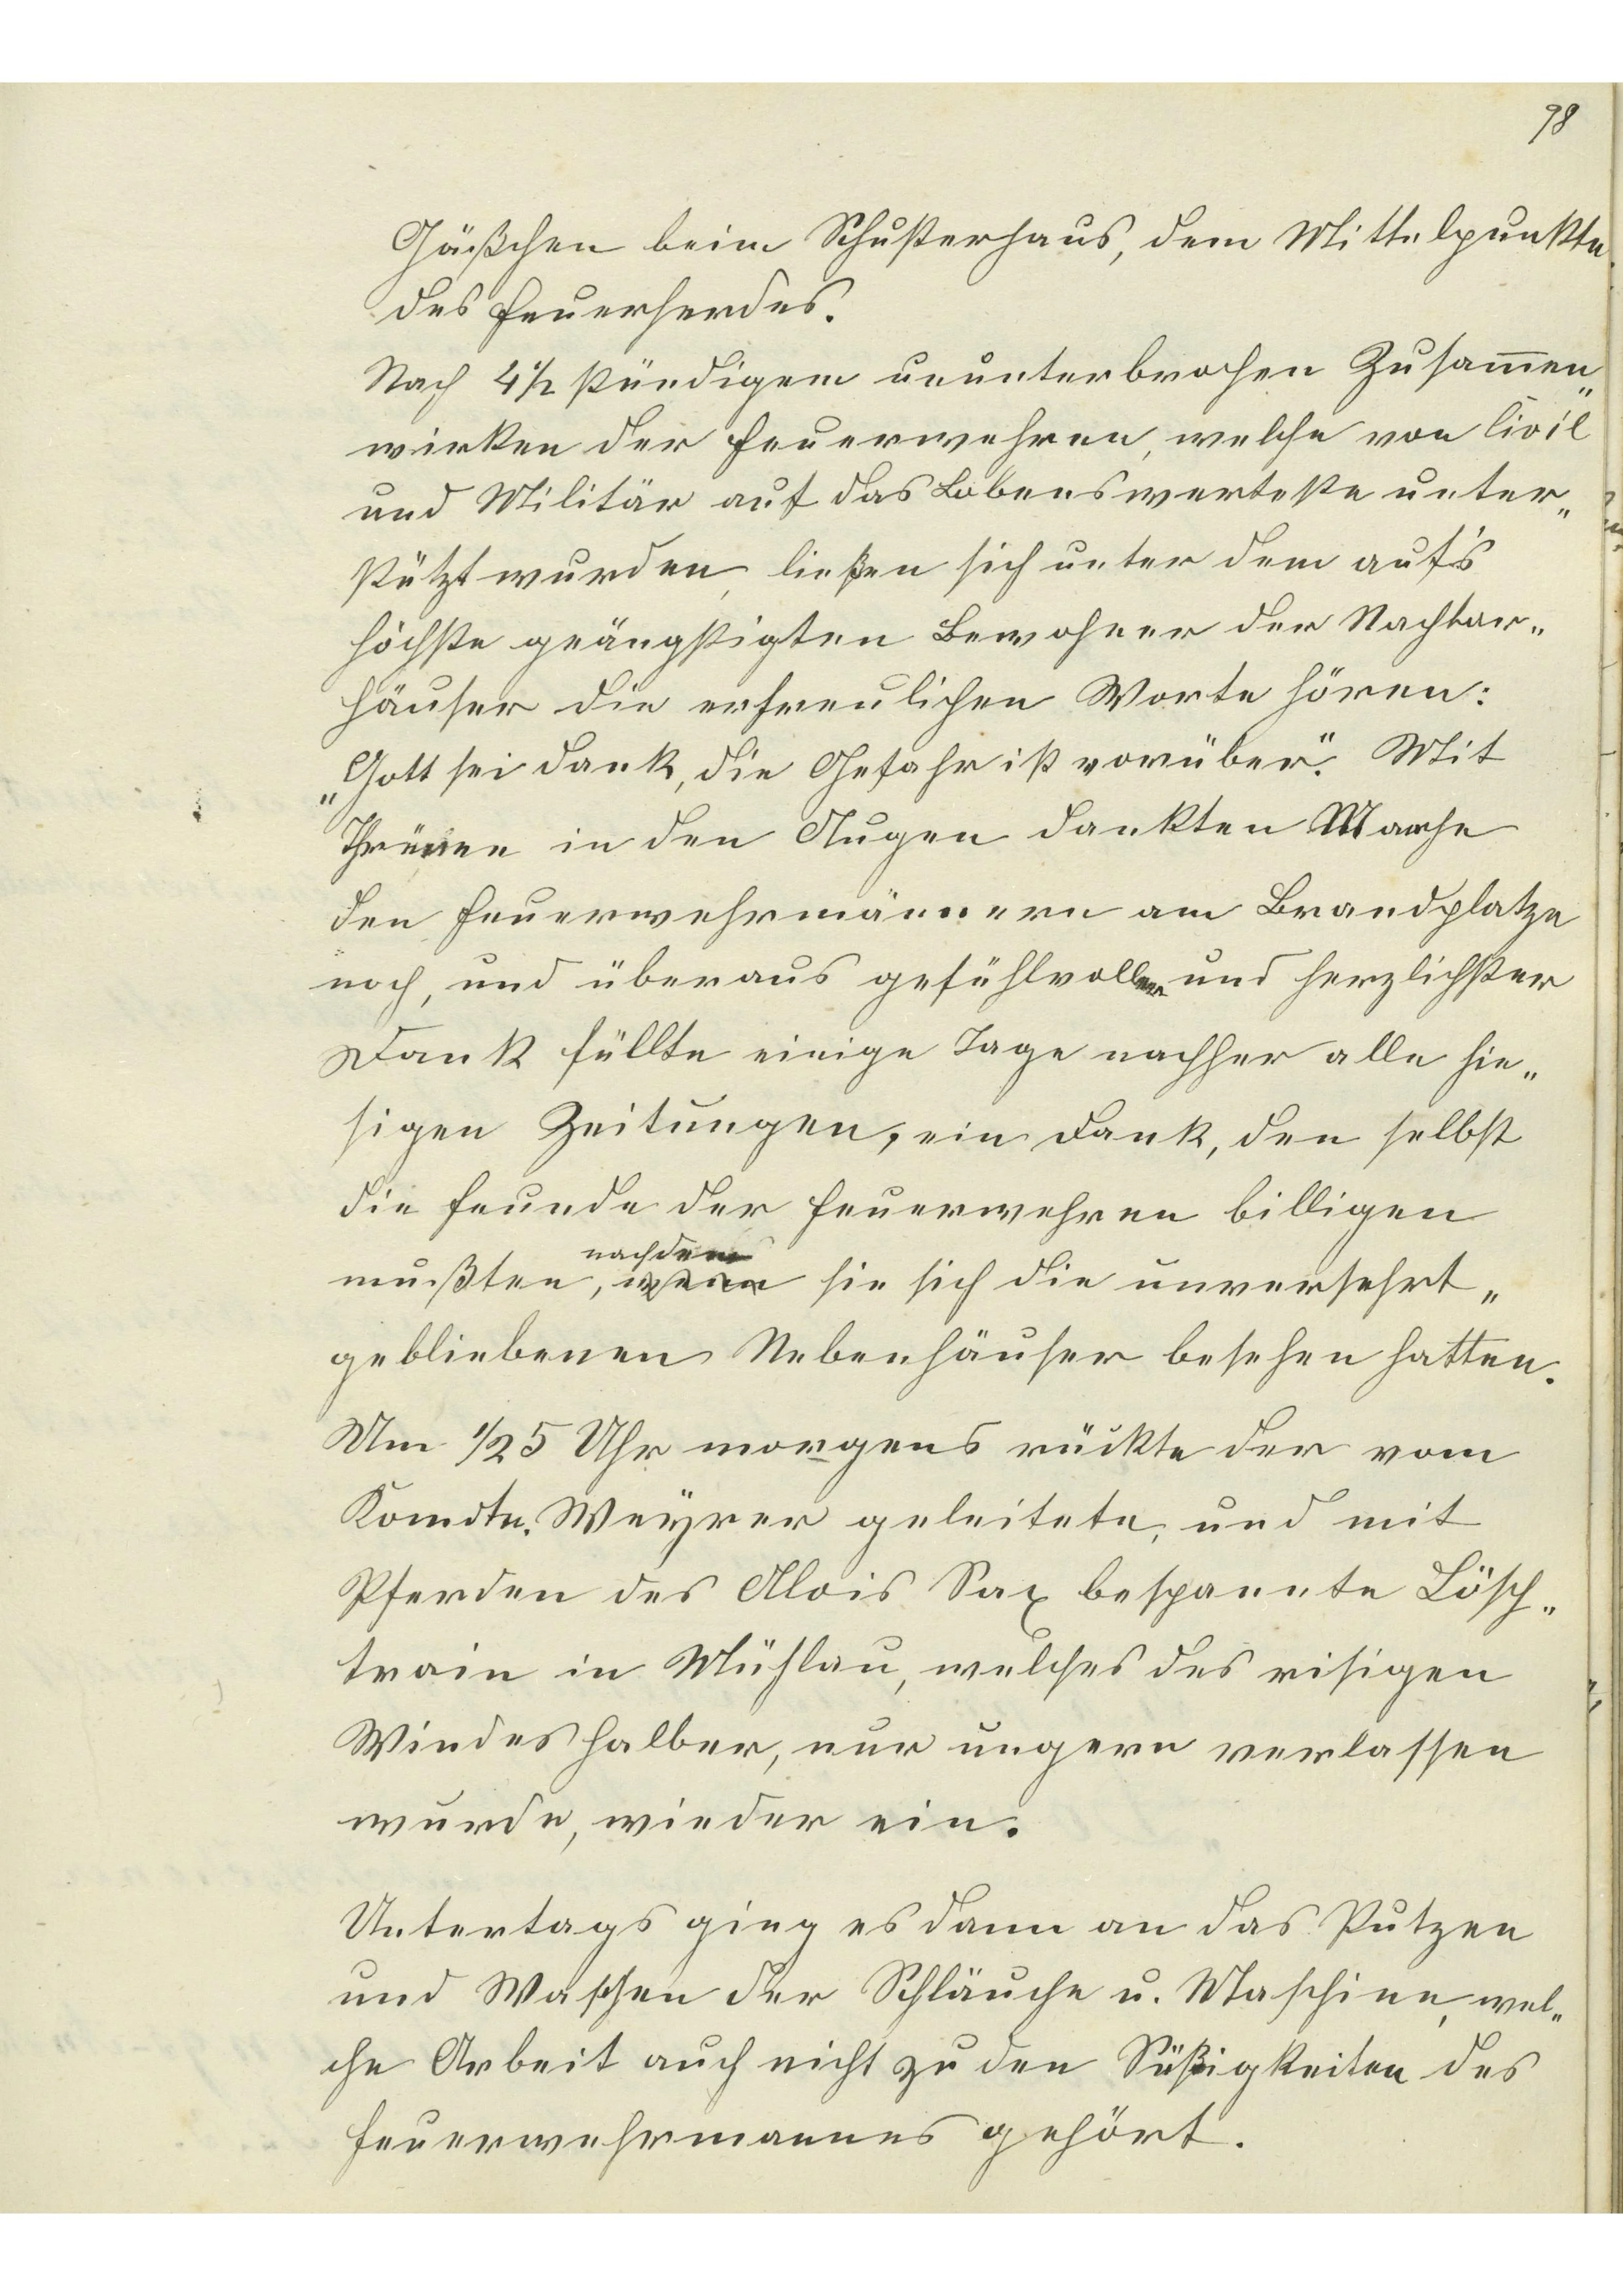 98
Gäßchen beim Schusterhaus, dem Mittelpunkte
des Feuerherdes.
Nach 4½ stündigem ununterbrochen Zusam̅en„
wirken der Feuerwehren, welche von Civil
und Militär auf das Lobenswerteste unter„
stützt wurden, ließen sich unter dem auf's
höchste geängstigten Bewohner der Nachbar„
häuser die erfreulichen Worte hören:
„Gott sei Dank, die Gefahr ist vorüber". Mit
Thränen in den Augen dankten Manche
den Feuerwehrmännern am Brandplatze
noch, und überaus gefühlvoller und herzlichster
Dank füllte einige Tage nachher alle hie„
sigen Zeitungen, ein Dank, den selbst
die Feunde der Feuerwehren billigen
nachdem
mußten, wenn sie sich die unversehrt„
gebliebenen Nebenhäuser besehen hatten.
Um ½5 Uhr morgens rückte der vom
Komdtn. Weyrer geleitete, und mit
Pferden des Alois Sax bespannte Lösch„
train in Mühlau, welches des risigen
Windes halber, nur ungern verlassen
wurde, wieder ein.
Untertags ging es dann an das Putzen
und Waschen der Schläuche u. Maschine, wel„
che Arbeit auch nicht zu den Süßigkeiten des
Feuerwehrmannes gehört.